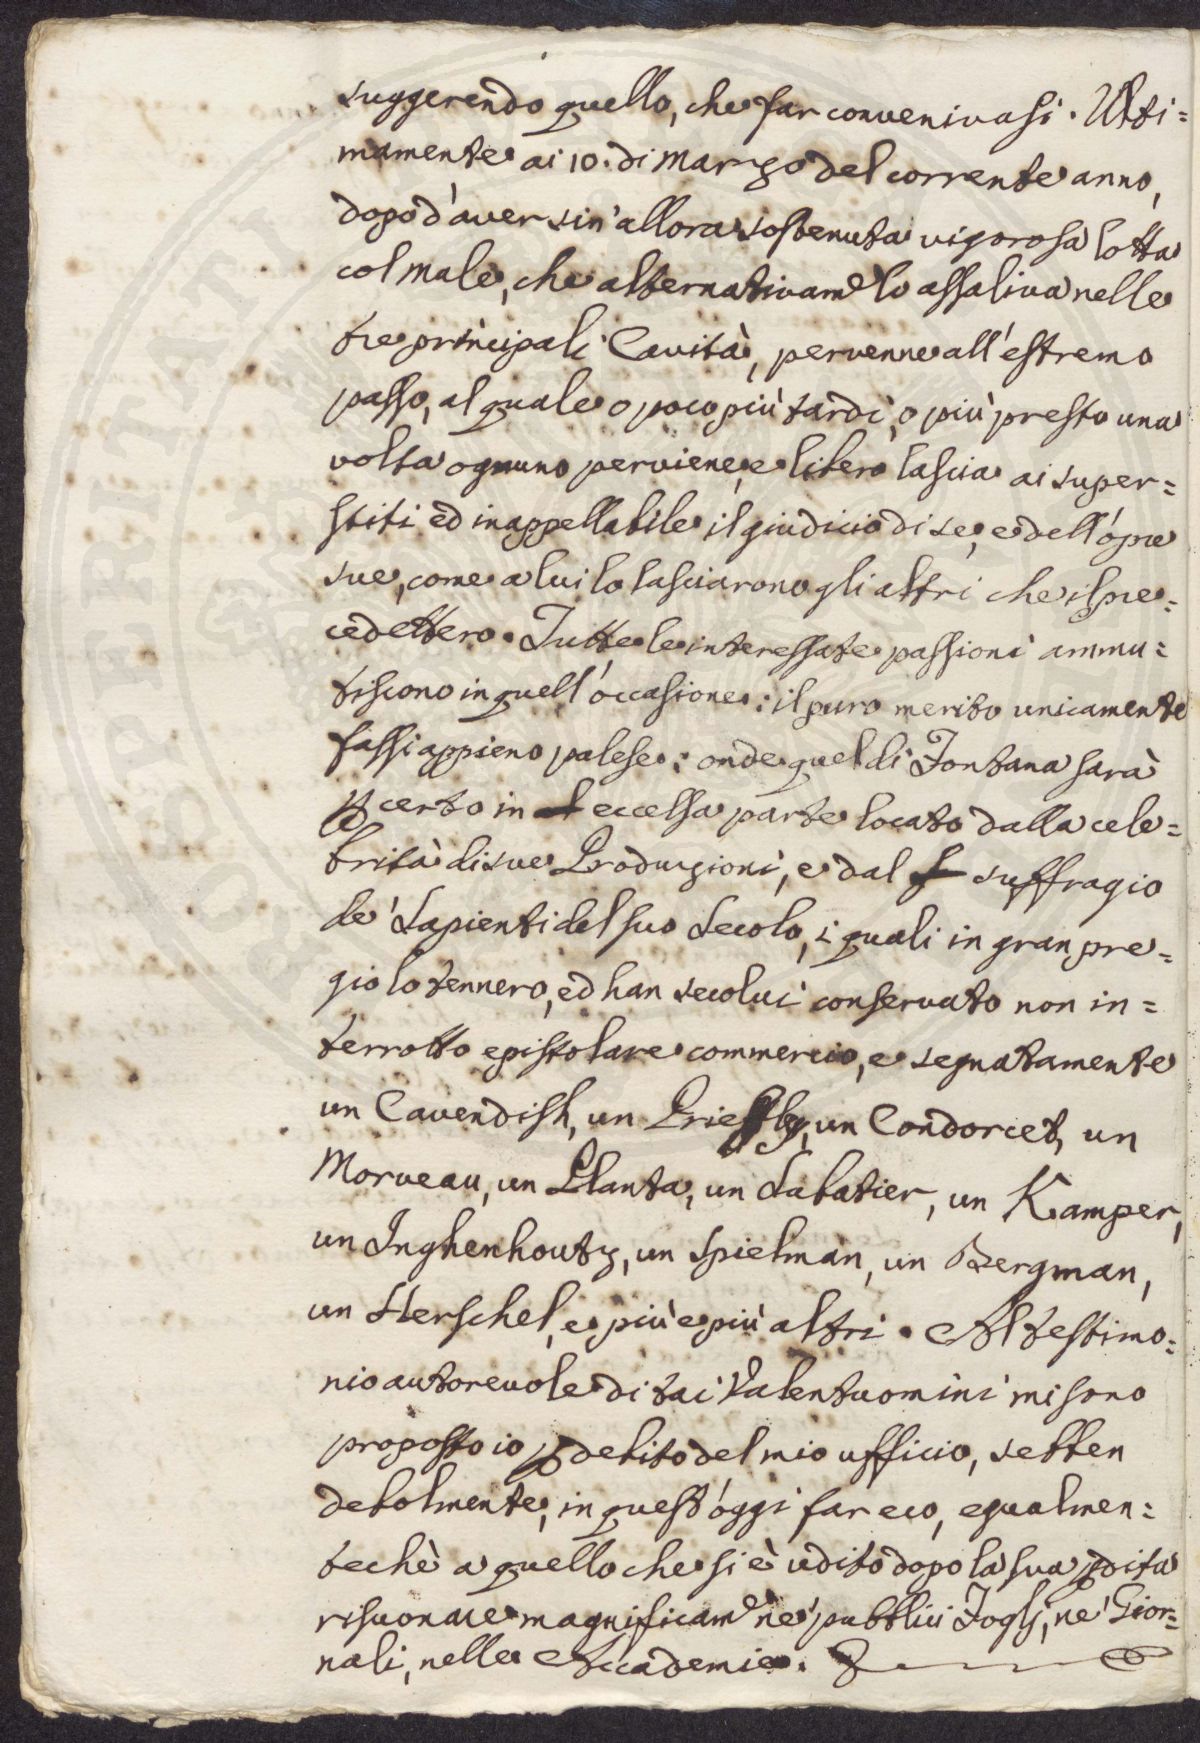 suggerendo quello, che far convenivasi. Ulti=
mamente ai 10. di Marzo del corrente anno,
dopo d'aver sin'allora sostenuta vigorosa lotta
col male, che alternativam.e lo assaliva nelle
tre principali Cavità, pervenne all'estremo
passo, al quale o poco più tardi, o più presto una
volta ognuno perviene, e libero lascia ai super=
stiti ed inappellabile il giudicio di se, e dell'opre
sue, come a lui lo lasciarono gli altri che il pre=
cedettero. Tutte le interessate passioni ammu=
tiscono in quell'occasione: il puro merito unicamente
fassi appieno palese; onde quel di Fontana sarà
p certo in eccelsa parte locato dalla cele=
brità di sue Produzioni, e dal suffragio
de' Sapienti del suo Secolo, i quali in gran pre=
gio lo tennero, ed han secolui conservato non in=
terrotto epistolare commercio, e segnatamente
un Cavendish, un Priestley, un Condorcet, un
Morveau, un Planta, un Sabatier, un Kamper,
un Inghenhoutz, un Spielman, un Bergman,
un Herschel, e più e più altri. Al testimo=
nio autorevole di tai Valentuomini mi sono
proposto io p debito del mio ufficio, sebben
debolmente, in quest'oggi far eco, egualmen=
techè a quello che si è udito dopo la sua pdita
risuonare magnificam.e ne' pubblici Foglj, ne' Gior=
nali, nelle Accademie.